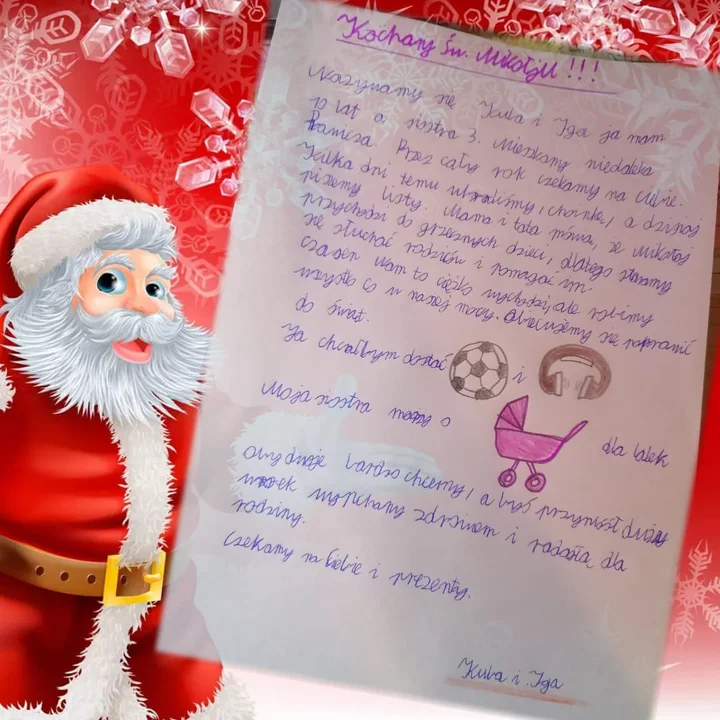 Kochany Św. Mikołaju !!!
Nazywamy się Kuba i Iga ja mam
10 lat a siostra 3. Mieszkamy niedaleko
Przez cały rok czekamy na ciebie.
Kilka dni temu ubraliśmy choinkę, a dzisiaj
piszemy listy. Mama i tata mówią, że Mikołaj
przychodzi do grzecznych dzieci, dlatego staramy
się słuchać rodziców i pomagać im.
Czasem nam to ciężko wychodzi, ale robimy
wszystko co w naszej mocy. Obiecujemy się poprawić
do świąt.
Ja chciałbym dostać i
Moja siostra marzy o dla lalek
Obydwoje bardzo chcemy, a byś przyniósł duży
worek wypchany zdrowiem i radością dla
rodziny.
Czekamy na Ciebie i prezenty.
Kuba i Iga